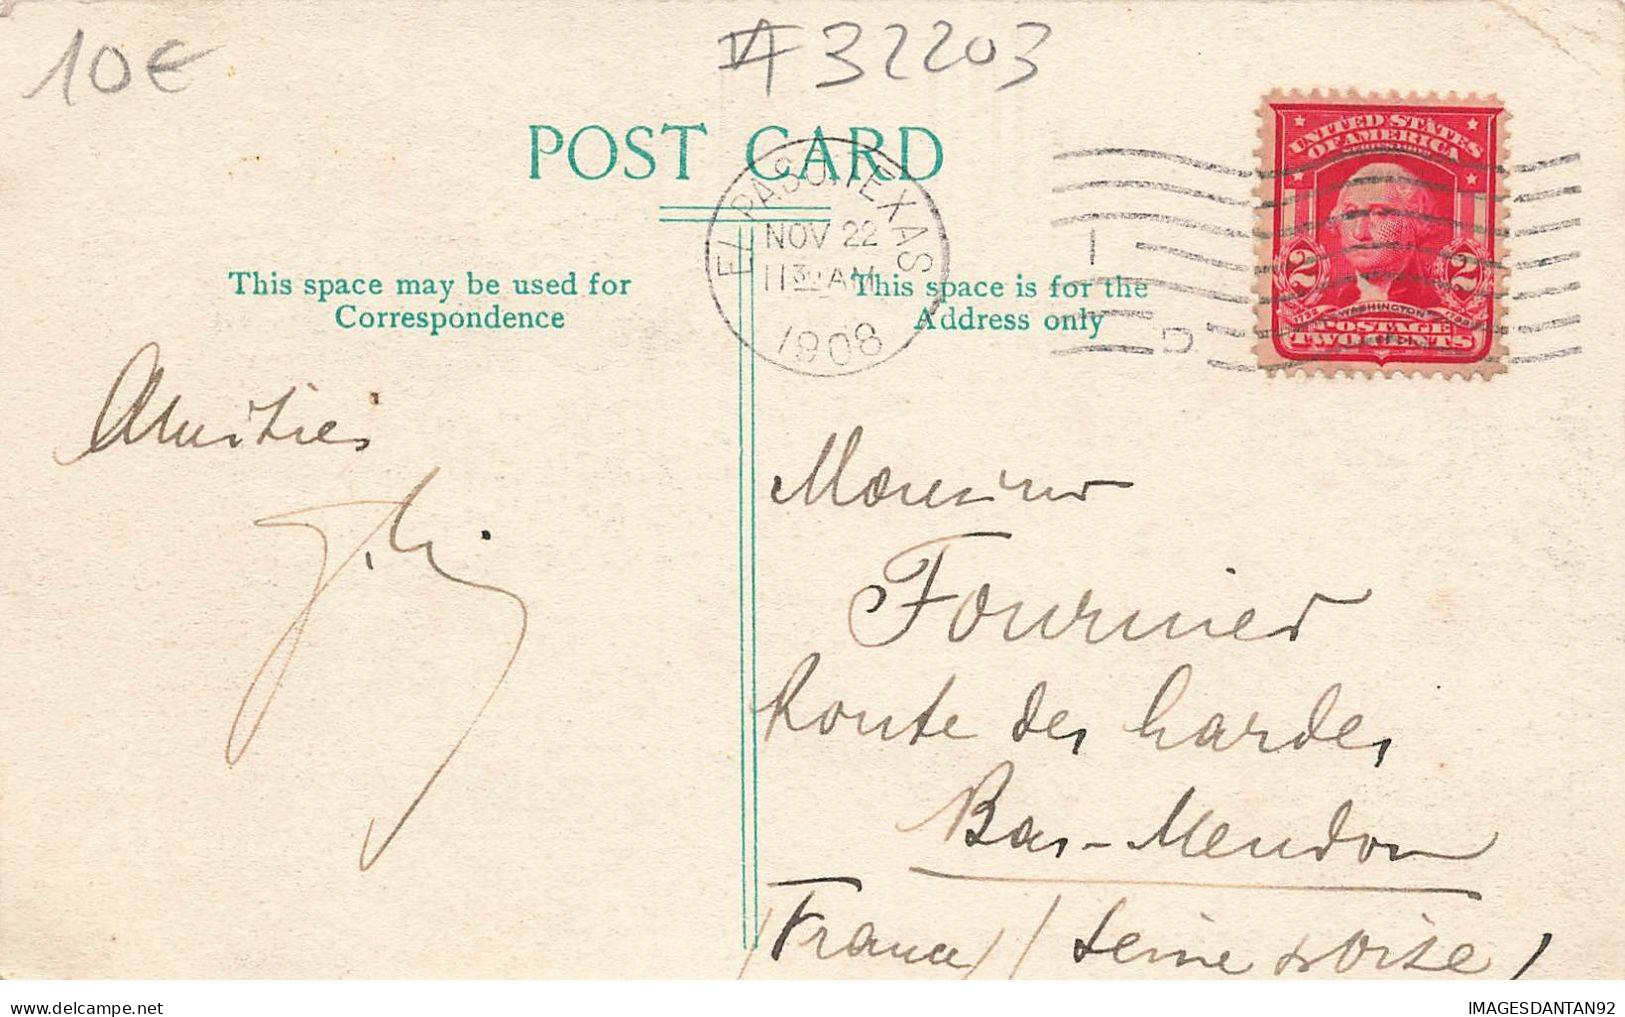 10€
#32203
POST CARD
EL PASO, TEXAS
NOV 22
11 30 AM
1908
UNITED STATES
OF AMERICA
2 2
WASHINGTON
POSTAGE
TWO CENTS
This space may be used for
Correspondence
This space is for the
Address only
Amitiés
Monsieur
Fournier
Route des Gardes
Bas-Meudon
(France) (Seine & Oise)
IMAGESDANTAN92